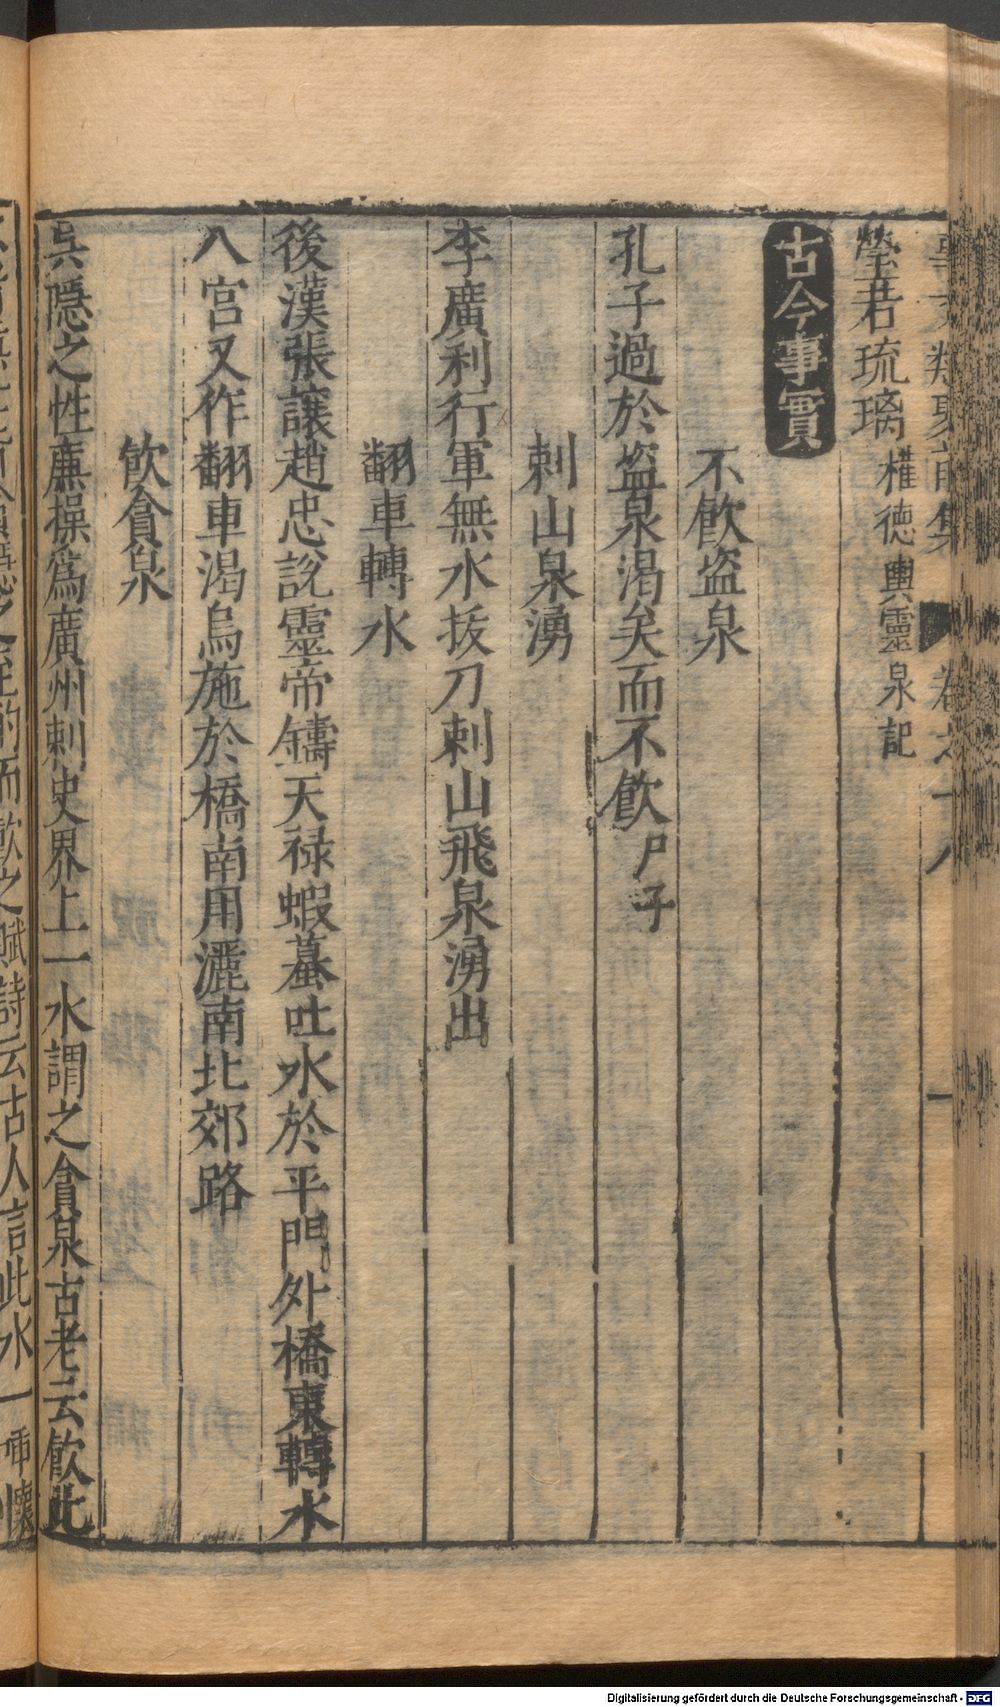 瑩若琉璃 權德輿靈泉記
古今事實
不飲盜泉
孔子過於盜泉渴矣而不飲尸子
刺山泉湧
李廣利行軍無水拔刀刺山飛泉湧出
翻車轉水
後漢張讓趙忠說靈帝鑄天祿蝦蟇吐水於平門外橋東轉水
入宫又作翻車渴烏施於橋南用灑南北郊路
飲貪泉
吳隱之性廉操爲廣州刺史界上一水謂之貪泉古老云飲此
之賦詩云古人言此水一歃懷
Digitalisierung gefördert durch die Deutsche Forschungsgemeinschaft - DFG